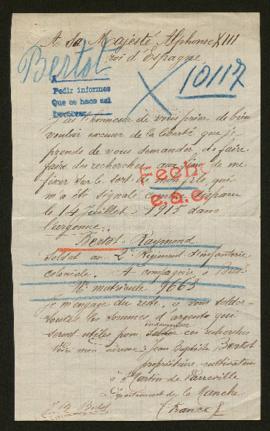 A Sa Majesté Alphonse XIII
roi d'Espagne
Bertot
10117
Pedir informes
Que se haga así
J'ai l'honneur de vous prier de bien
vouloir excuser de la liberté que je
prends de vous demander de faire
faire des recherches
fixer sur le sort de mon fils qui
m'a été signalé comme disparu
le 14 juillet 1915 dans
l'argonne.
Fech.
e.a.e.
Bertot Raymond
Soldat au 2e Régiment d'infanterie
coloniale 4e compagnie
No matricule 9663
je m'engage du reste, à vous solder
toutes les sommes d'argent qui
seront utiles pour ces recherches
Voici mon adresse : Jean Baptiste Bertot
propriétaire, cultivateur
à St Martin de Varreville
Département de la Manche
(France)
J. B. Bertot